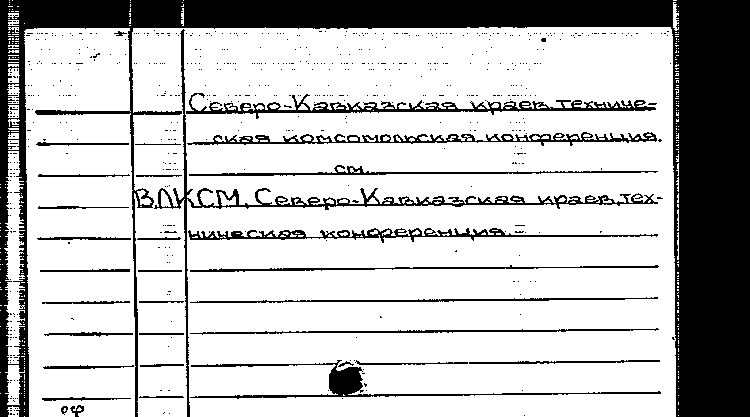 Северо-Кавказская краев. техниче=
ская комсомольская конференция
см.
ВЛКСМ. Северо-Кавказская краев. тех-
ническая конференция.-
оф